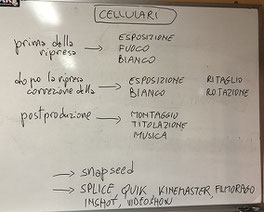 CELLULARI
prima della ripresa → ESPOSIZIONE
FUOCO
BIANCO
dopo la ripresa correzione della → ESPOSIZIONE RITAGLIO
BIANCO ROTAZIONE
postproduzione → MONTAGGIO
TITOLAZIONE
MUSICA
→ snapseed
→ SPLICE, QUIK, KINEMASTER, FILMORAGO
INSHOT, VIDEOSHOW